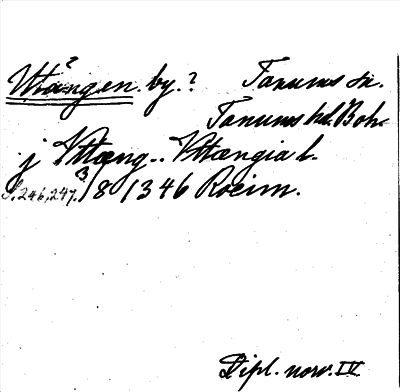 ?
Uttängen. by.? Tanums sn.
Tanums hd. Boh.
j Vttæng.. Vttængia b.
S. 246, 247. 3/8 1346 Roeim.
Dipl. norv. IV